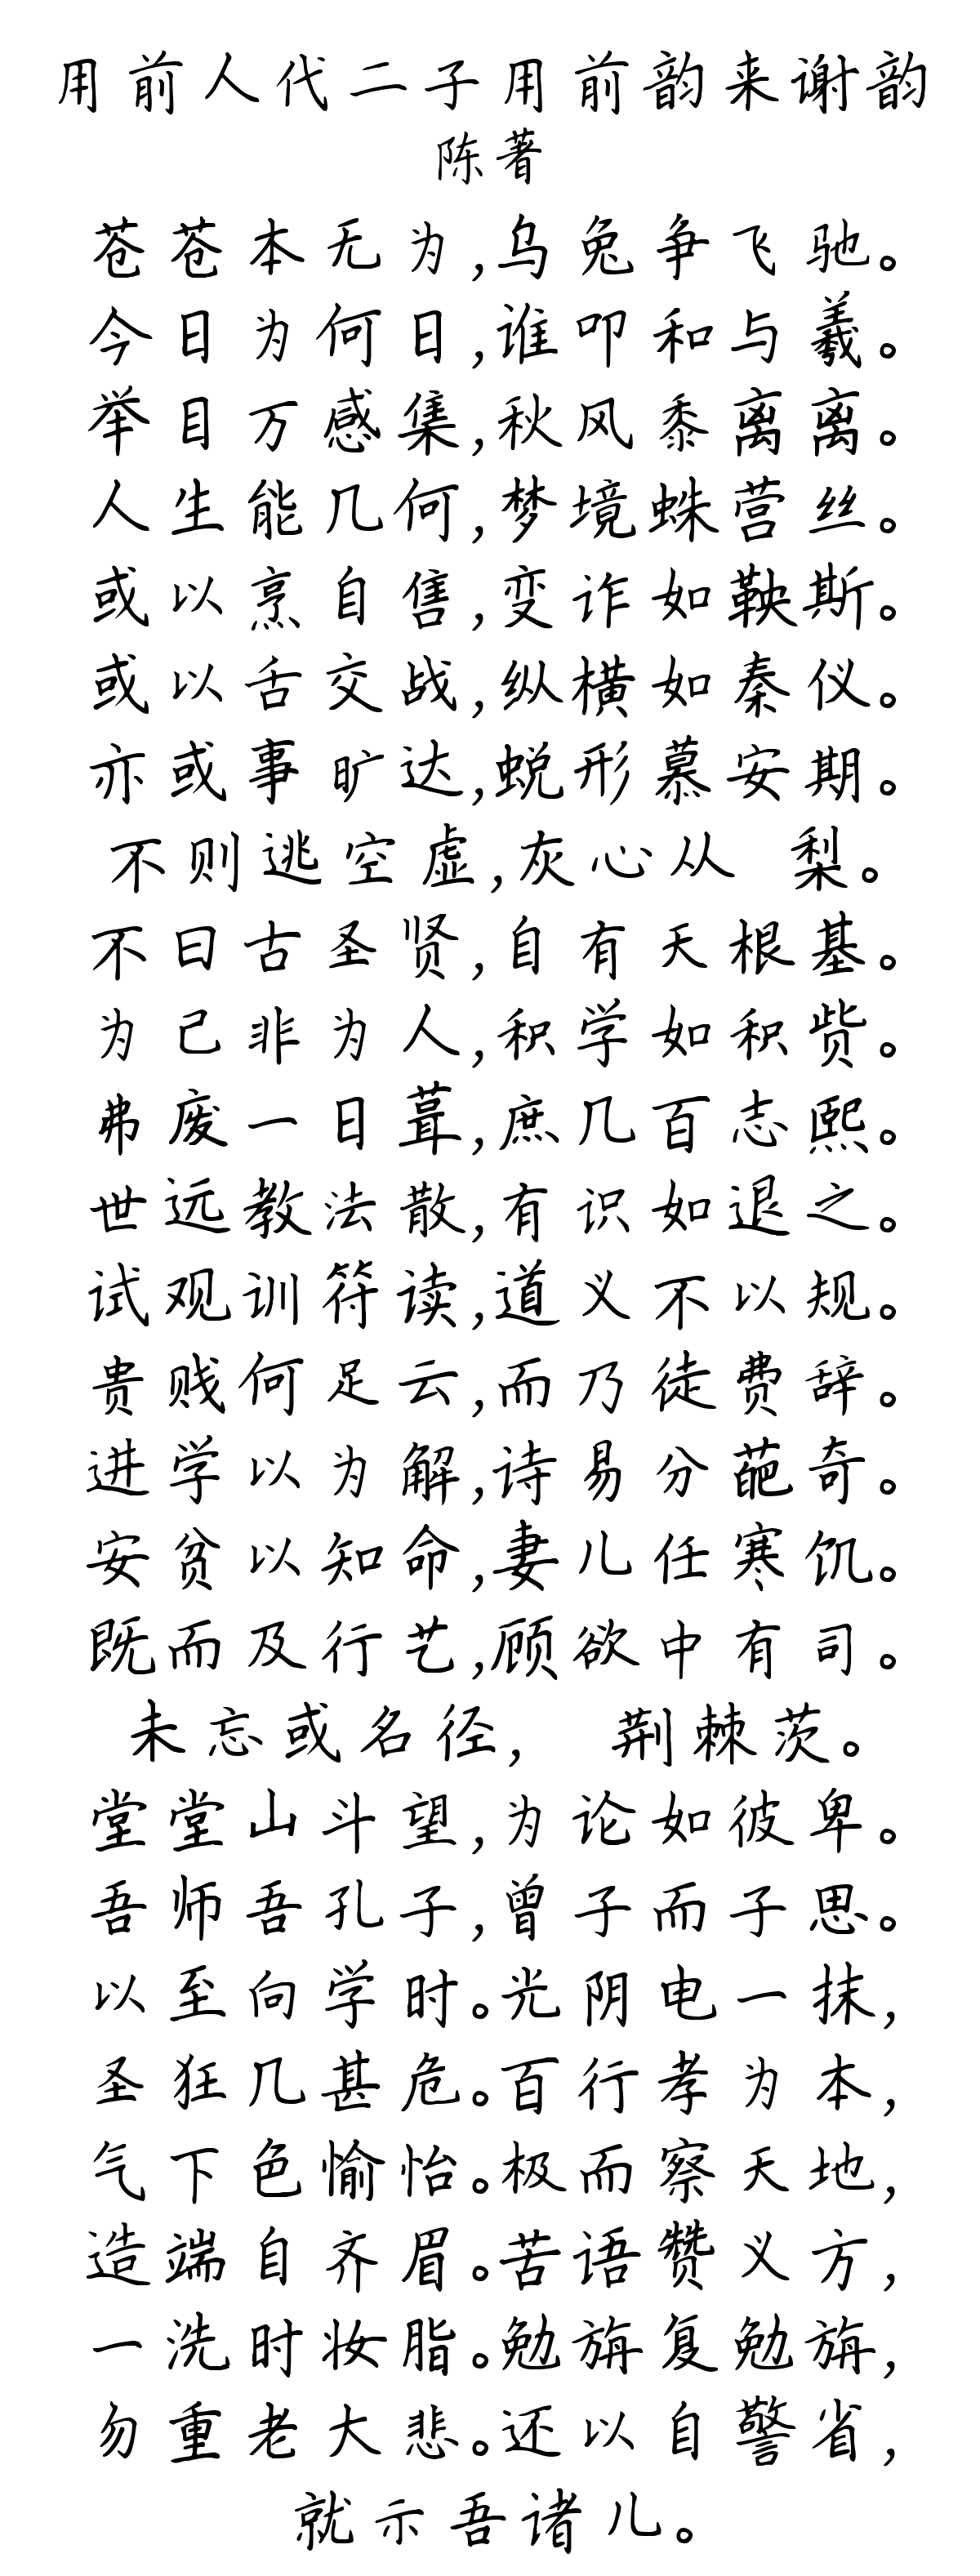 用前人代二子用前韵来谢韵
陈著
苍苍本无为,乌兔争飞驰。
今日为何日,谁叩和与羲。
举目万感集,秋风黍离离。
人生能几何,梦境蛛营丝。
或以烹自售,变诈如鞅斯。
或以舌交战,纵横如秦仪。
亦或事旷达,蜕形慕安期。
不则逃空虚,灰心从 梨。
不曰古圣贤,自有天根基。
为己非为人,积学如积赀。
弗废一日葺,庶几百志熙。
世远教法散,有识如退之。
试观训符读,道义不以规。
贵贱何足云,而乃徒费辞。
进学以为解,诗易分葩奇。
安贫以知命,妻儿任寒饥。
既而及行艺,顾欲中有司。
未忘或名径, 荆棘茨。
堂堂山斗望,为论如彼卑。
吾师吾孔子,曾子而子思。
以至向学时。光阴电一抹,
圣狂几甚危。百行孝为本,
气下色愉怡。极而察天地,
造端自齐眉。苦语赞义方,
一洗时妆脂。勉旃复勉旃,
勿重老大悲。还以自警省,
就示吾诸儿。